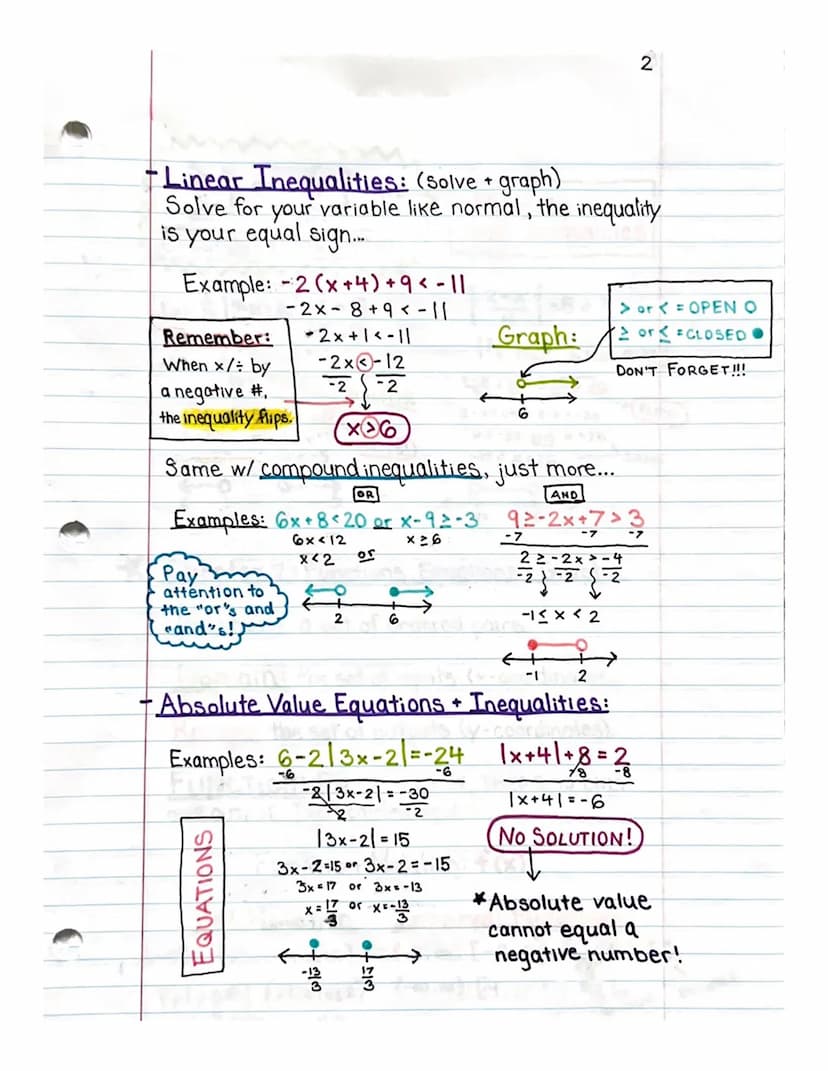 2
- Linear Inequalities: (solve + graph)
Solve for your variable like normal, the inequality
is your equal sign...
Example: -2(x+4)+9 < -11
-2x - 8 + 9 < -11
-2x + 1 < -11
-2x < -12
-2 -2
x > 6
Remember:
When x/÷ by
a negative #,
the inequality flips.
Graph:
6
> or < = OPEN O
≥ or ≤ = CLOSED ●
DON'T FORGET!!!
Same w/ compound inequalities, just more...
OR
AND
Examples: 6x+8<20 or x-9≥-3
6x<12 x≥6
x<2 or
2 6
9≥-2x+7>3
-7 -7 -7
2≥-2x>-4
-2 -2 -2
-1≤x<2
-1 2
Pay
attention to
the "or"s and
"and"s!
- Absolute Value Equations + Inequalities:
Examples: 6-2|3x-2|=-24
-6 -6
-2|3x-2| = -30
-2 -2
|3x-2| = 15
3x-2=15 or 3x-2=-15
3x=17 or 3x=-13
x=17/3 or x=-13/3
-13/3 17/3
EQUATIONS
|x+4|+8=2
-8 -8
|x+4|=-6
NO SOLUTION!
*Absolute value
cannot equal a
negative number!